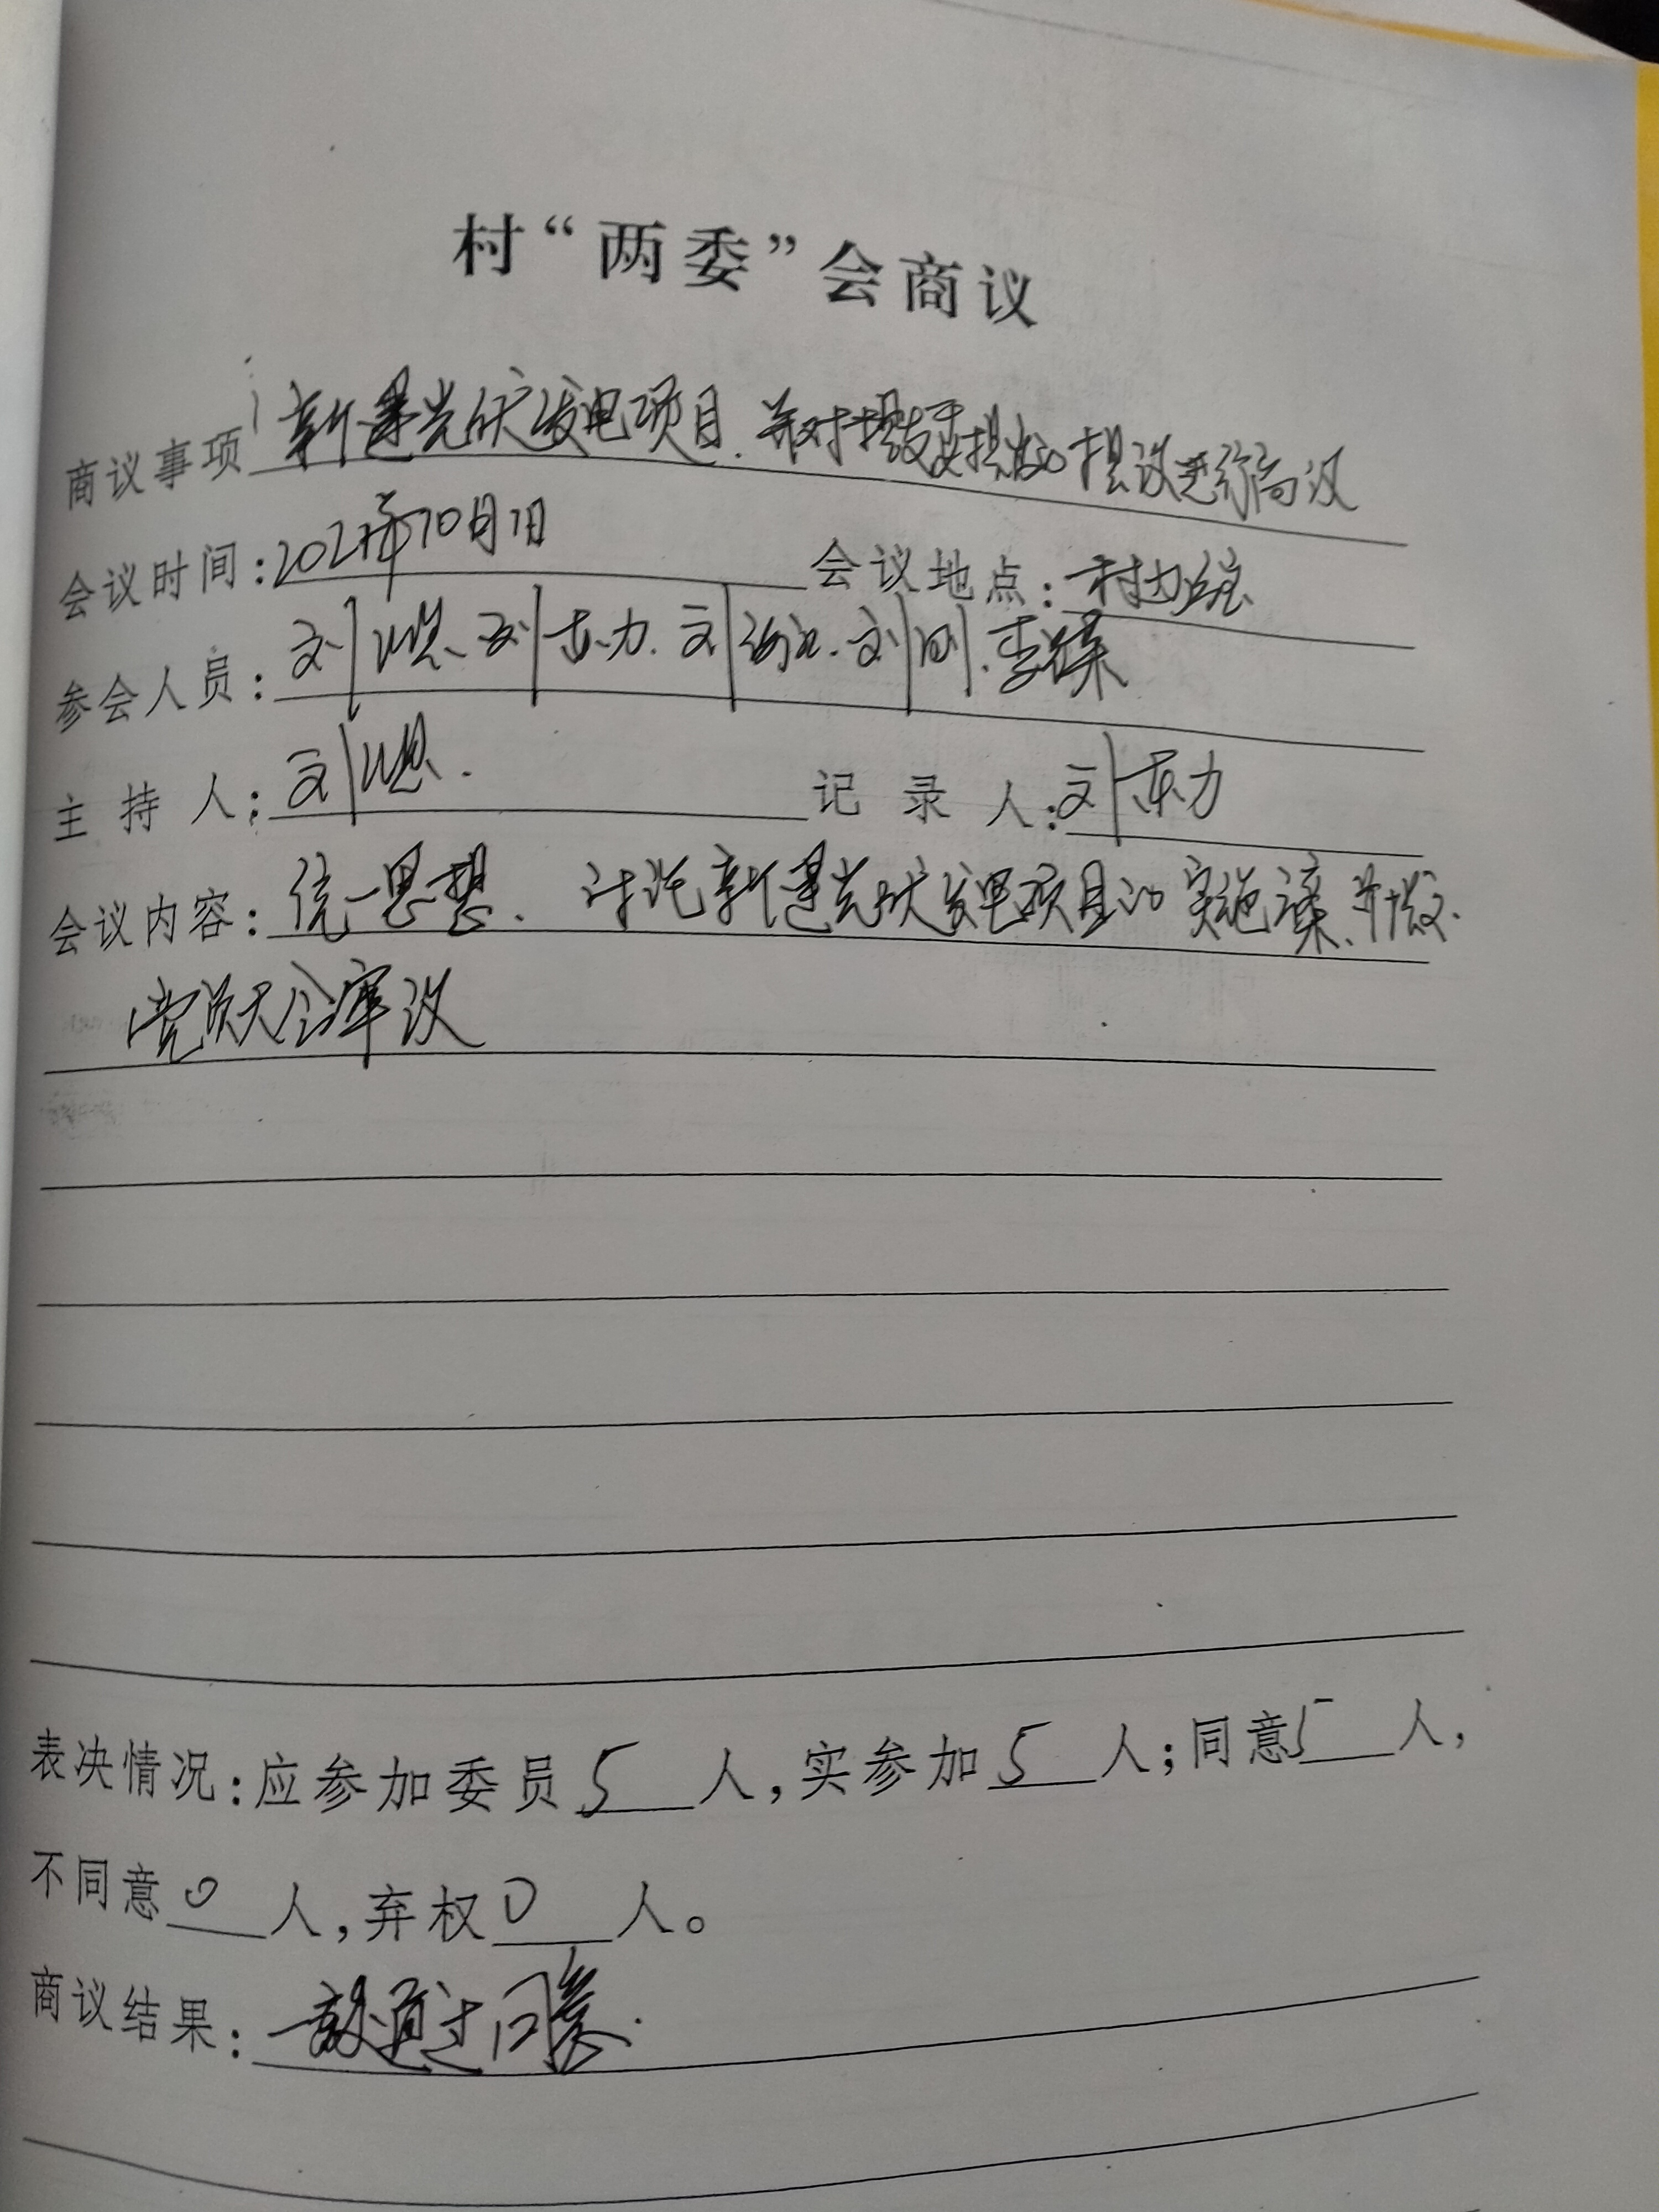 村“两委”会商议
商议事项 新建光伏发电项目.并对村支委提出的提议进行商议
会议时间:202 年10月1日 会议地点:村办公室
参会人员:刘 、刘东力.刘海江.刘刚.李
主持人:刘 . 记录人:刘东力
会议内容:统一思想. 讨论新建光伏发电项目的实施方案.并提交
党员大会审议
表决情况:应参加委员5人,实参加5人;同意5人,
不同意0人,弃权0人。
商议结果:一致通过同意.